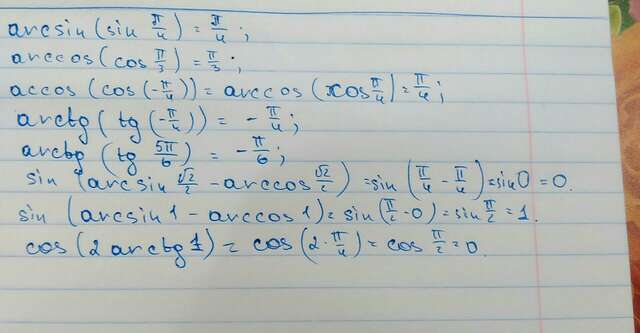 arcsin(sin π/4) = π/4;
arccos(cos π/3) = π/3;
accos(cos(-π/4)) = arccos(cos π/4) = π/4;
arctg(tg(-π/4)) = -π/4;
arctg(tg 5π/6) = -π/6;
sin(arcsin √2/2 - arccos √2/2) = sin(π/4 - π/4) = sin 0 = 0.
sin(arcsin 1 - arccos 1) = sin(π/2 - 0) = sin π/2 = 1.
cos(2 arctg 1) = cos(2·π/4) = cos π/2 = 0.